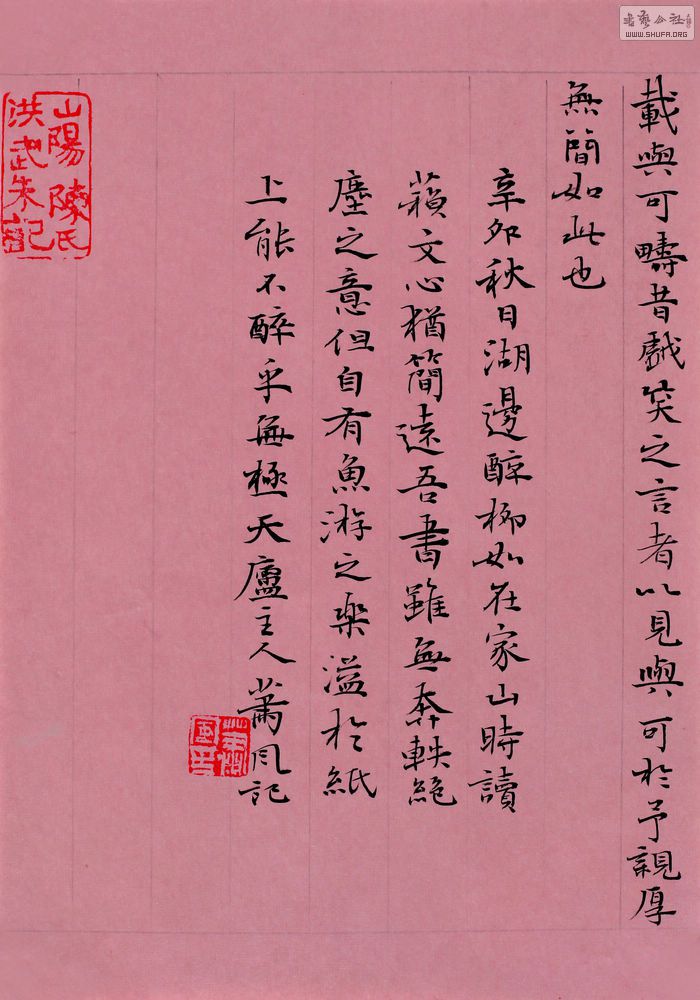 載與可疇昔戲笑之言者以見與可於予親厚
無簡如此也
辛卯秋日湖邊醉柳如在家山時讀
蘇文心猶簡遠吾書雖無奔軼絕
塵之意但自有魚游之樂溢於紙
上能不醉乎無極天廬主人蕭風記
山陽陳氏
洪武朱記
書法公社
WWW.SHUFA.ORG